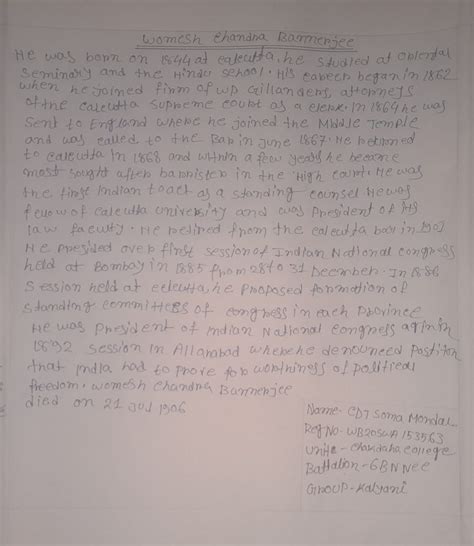 Womesh Chandra Bannerjee
He was born on 1844 at calcutta, he studied at Oriental
Seminary and the Hindu school. His career began in 1862
when he joined firm of WP Gillanders, attorneys
of the calcutta Supreme court as a clerk. In 1864 he was
sent to England where he joined the Middle Temple
and was called to the Bar in June 1867. He returned
to calcutta in 1868 and within a few years he become
most sought after barrister in the High court. He was
the first Indian to act as a standing counsel He was
fellow of calcutta university and was President of its
law faculty. He retired from the calcutta bar in 1901
He presided over first session of Indian National congress
held at Bombay in 1885 from 28 to 31 December. In 1886
session held at calcutta he proposed formation of
standing committees of congress in each Province
He was president of Indian National congress again in
1892 session in Allahabad where he denounced
that India had to prove for worthiness of political
freedom. Womesh Chandra Bannerjee
died on 21 July 1906
Name- CDT Soma Mondal
Reg No- WB20SWA153563
Unite- Chakdaha college
Battalion- 6BN NCC
Group- Kalyani